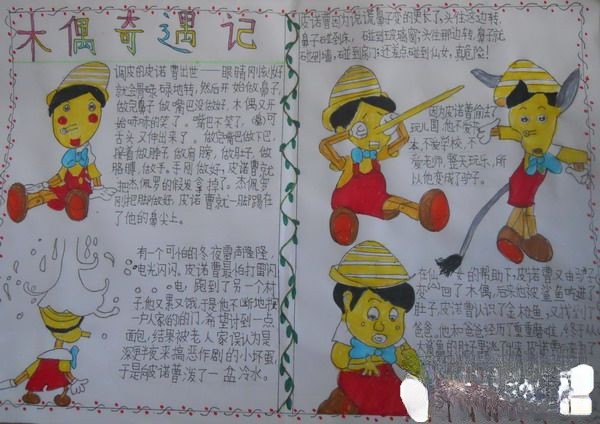 木偶奇遇记
调皮的皮诺曹出世——眼睛刚做好
就会骨碌碌地转,然后开始做鼻子,
做完鼻子做嘴巴没做好,木偶又开
始咔咔的笑了。嘴巴不笑了,
舌头又伸出来了。做完嘴巴做下巴,
接着做脖子,做肩膀,做肚子,做
胳膊,做手。手刚做好,皮诺曹就
把杰佩罗的假发拿掉了。杰佩罗
刚把脚做好,皮诺曹就一脚踢在
了他的鼻尖上。
有一个可怕的冬夜雷声隆隆,
电光闪闪。皮诺曹最怕打雷闪
电,跑到了另一个村
子,他又累又饿,于是他不断地按
一户人家的门,希望讨到一点
面包,结果被老人家误认为是
深更半夜来搞恶作剧的小坏蛋,
于是向皮诺曹泼了一盆冷水。
皮诺曹因为说谎鼻子变的更长了,头往这边转,
鼻子碰到床,碰到玻璃窗;头往那边转,鼻子就
碰到墙,碰到房门;还差点碰到仙女,真危险!
因为皮诺曹偷去了
玩儿国,他不爱书
本,不爱学校,不
爱老师,整天玩乐,所
以他变成了驴子。
在仙女的帮助下,皮诺曹又由驴子
变回了木偶,后来他被鲨鱼吃进了
肚子,皮诺曹认识了金枪鱼,又找到了
爸爸,他和爸爸经历了重重磨难,终